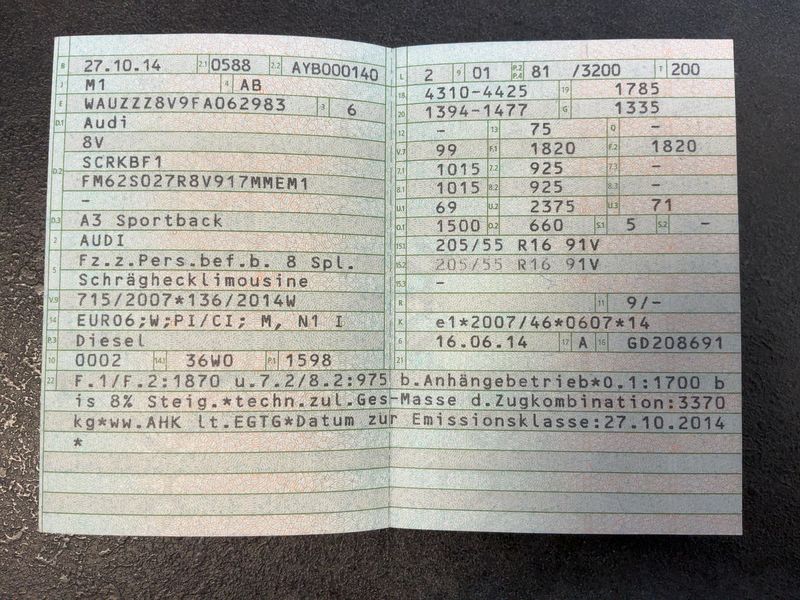 B 27.10.14 2.1 0588 2.2 AYB000140
J M1 4 AB
E WAUZZZ8V9FA062983 3 6
D.1 Audi
8V
D.2 SCRKBF1
FM62S027R8V917MMEM1
-
D.3 A3 Sportback
2 AUDI
5 Fz.z.Pers.bef.b. 8 Spl.
Schräghecklimousine
V.9 715/2007*136/2014W
14 EURO6;W;PI/CI; M, N1 I
P.3 Diesel
10 0002 14.1 36W0 P.1 1598
L 2 9 01 P.2 P.4 81 /3200 T 200
18 4310-4425 19 1785
20 1394-1477 G 1335
12 - 13 75 Q -
V.7 99 F.1 1820 F.2 1820
7.1 1015 7.2 925 7.3 -
8.1 1015 8.2 925 8.3 -
U.1 69 U.2 2375 U.3 71
O.1 1500 O.2 660 S.1 5 S.2 -
15.1 205/55 R16 91V
15.2 205/55 R16 91V
15.3 -
R 11 9/-
K e1*2007/46*0607*14
6 16.06.14 17 A 16 GD208691
21
22 F.1/F.2:1870 u.7.2/8.2:975 b.Anhängebetrieb*O.1:1700 b
is 8% Steig.*techn.zul.Ges-Masse d.Zugkombination:3370
kg*ww.AHK lt.EGTG*Datum zur Emissionsklasse:27.10.2014
*